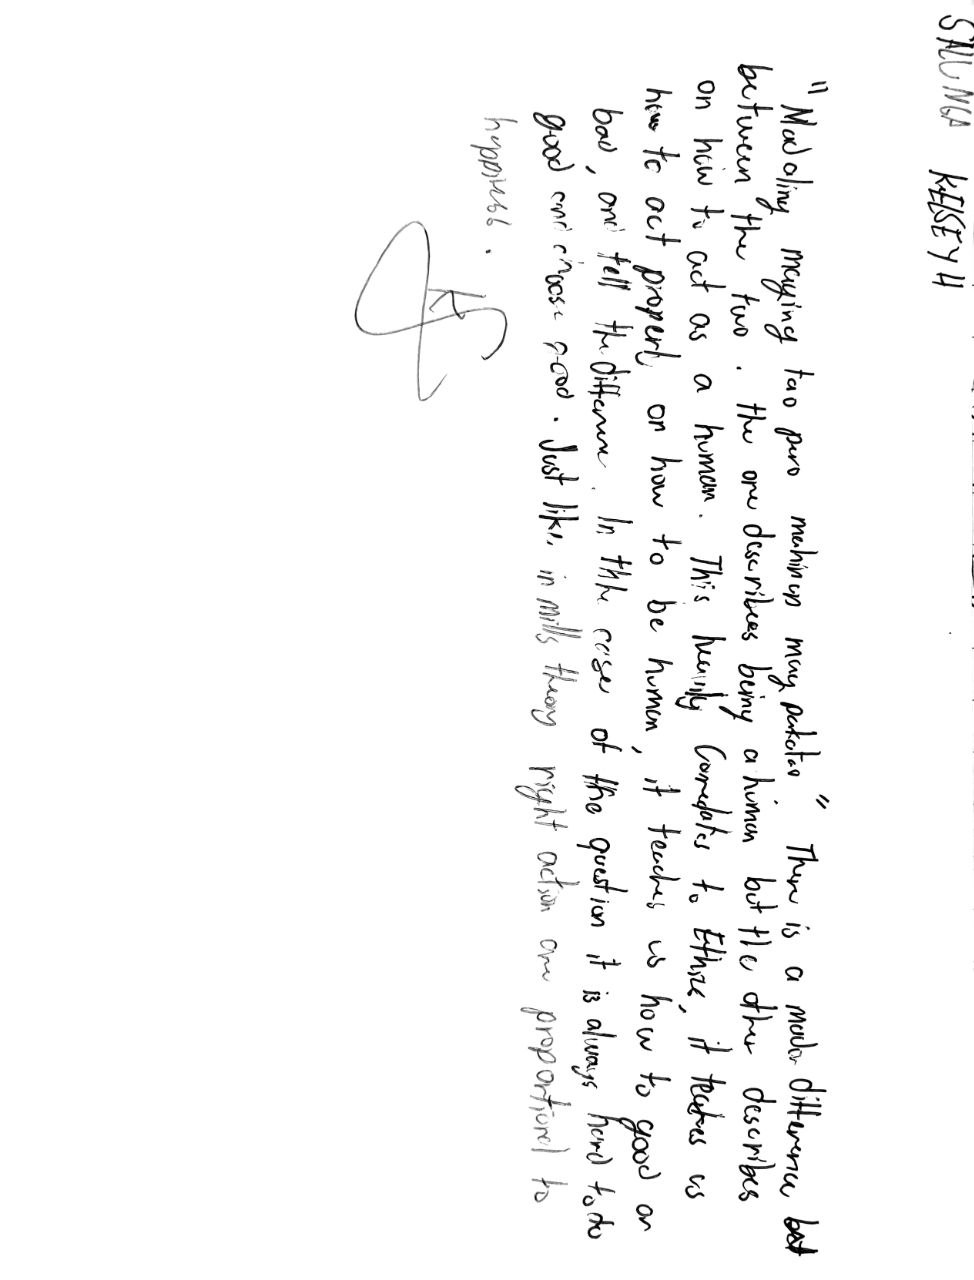 SALUNGA KELSEY H
"Madaling maging tao pero mahirap may pakatao". There is a major difference but
between the two. the one describees being a human but the other describes
on how to act as a human. This heavily Corredates to Ethics, it teaches us
how to act properl, or how to be human, it teaches us how to good or
bad, and tell the difference. In thhe case of the question it is always hard to do
good and choose good. Just like in mills theory right action are proportional to
happiness.